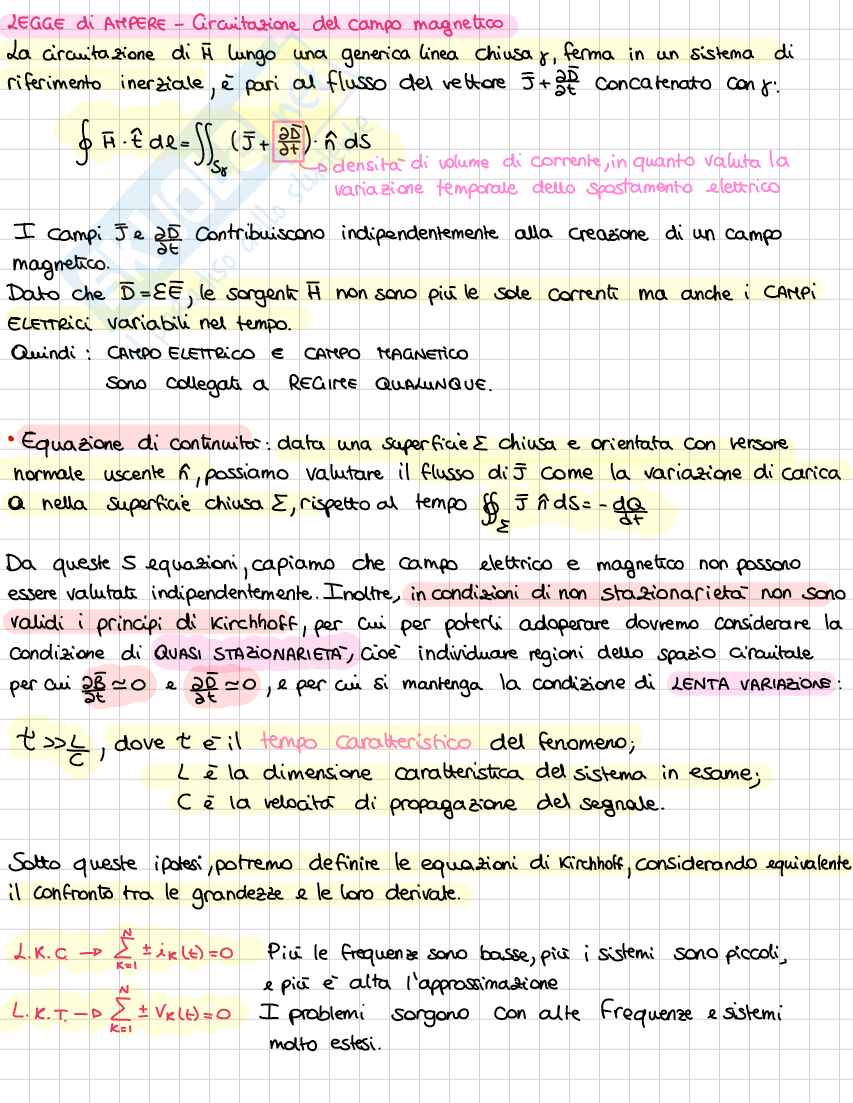 LEGGE di AMPERE - Circuitazione del campo magnetico
La circuitazione di H̄ lungo una generica linea chiusa γ, ferma in un sistema di
riferimento inerziale, è pari al flusso del vettore J̄+∂D̄/∂t concatenato con γ:
∮ H̄·t̂ dl = ∬_Sγ (J̄+ ∂D̄/∂t)·n̂ dS
→ densità di volume di corrente, in quanto valuta la
variazione temporale dello spostamento elettrico
I campi J̄ e ∂D̄/∂t contribuiscono indipendentemente alla creazione di un campo
magnetico.
Dato che D̄=εĒ, le sorgenti H̄ non sono più le sole correnti ma anche i CAMPI
ELETTRICI variabili nel tempo.
Quindi: CAMPO ELETTRICO E CAMPO MAGNETICO
sono collegati a REGIME QUALUNQUE.
• Equazione di continuità: data una superficie Σ chiusa e orientata con versore
normale uscente n̂, possiamo valutare il flusso di J̄ come la variazione di carica
Q nella superficie chiusa Σ, rispetto al tempo ∯_Σ J̄ n̂ dS = - dQ/dt
Da queste 5 equazioni, capiamo che campo elettrico e magnetico non possono
essere valutati indipendentemente. Inoltre, in condizioni di non stazionarietà non sono
validi i principi di Kirchhoff, per cui per poterli adoperare dovremo considerare la
condizione di QUASI STAZIONARIETÀ, cioè individuare regioni dello spazio circuitale
per cui ∂B̄/∂t ≃ 0 e ∂D̄/∂t ≃ 0, e per cui si mantenga la condizione di LENTA VARIAZIONE:
t >> L/C, dove t è il tempo caratteristico del fenomeno;
L è la dimensione caratteristica del sistema in esame;
C è la velocità di propagazione del segnale.
Sotto queste ipotesi, potremo definire le equazioni di Kirchhoff, considerando equivalente
il confronto tra le grandezze e le loro derivate.
L.K.C → Σ_{K=1}^{N} ± i_K(t) = 0 Più le frequenze sono basse, più i sistemi sono piccoli,
e più è alta l'approssimazione
L.K.T. → Σ_{K=1}^{N} ± V_K(t) = 0 I problemi sorgono con alte frequenze e sistemi
molto estesi.